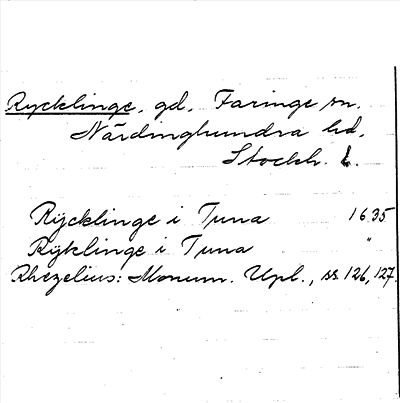 Rycklinge, gd, Faringe sn.
Närdinghundra hd.
Stockh. L.
Rijcklinge i Tuna 1635
Rijklinge i Tuna "
Rhezelius: Monum. Upl., ss 126, 127.